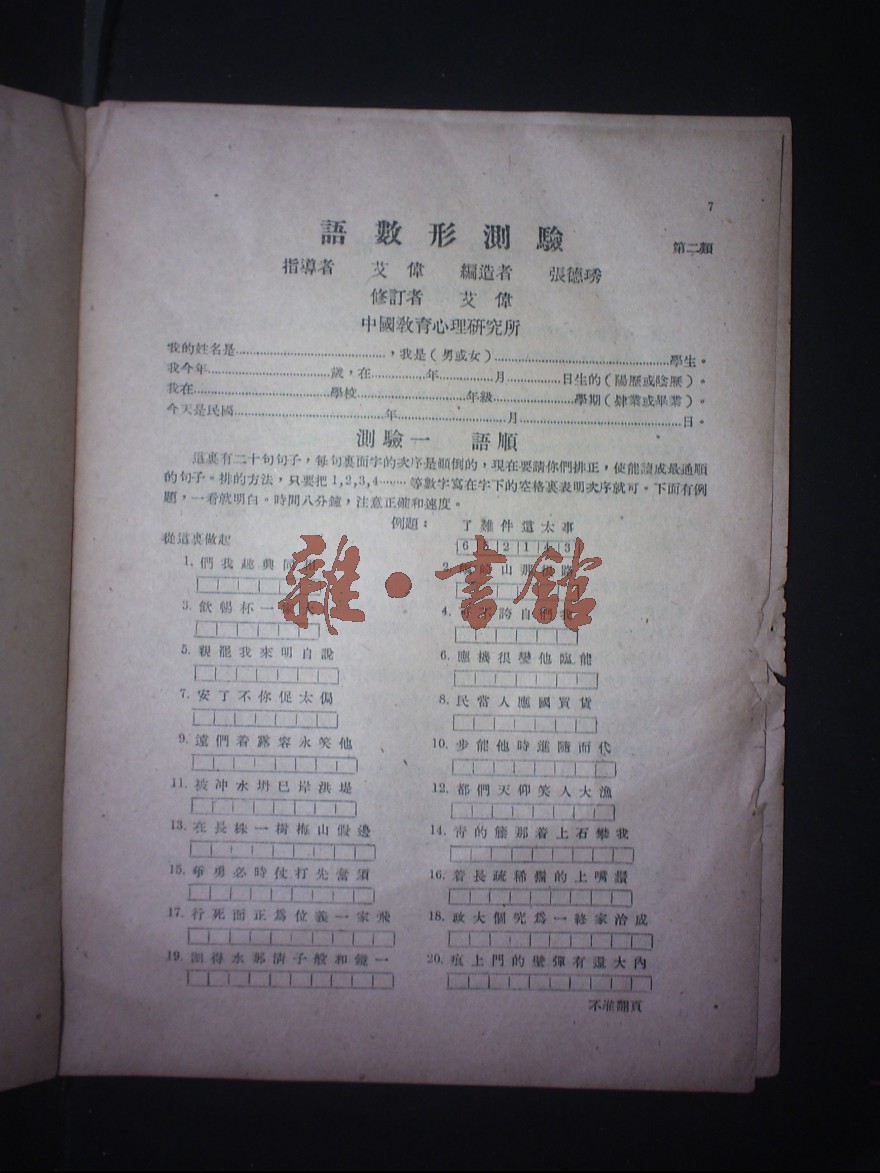 7
語數形測驗
第二類
指導者 艾偉 編造者 張德琇
修訂者 艾偉
中國教育心理研究所
我的姓名是……………………,我是(男或女)……………………學生。
我今年……………歲,在………年………月………日生的(陽歷或陰歷)。
我在………………學校………………年級……………學期(肄業或畢業)。
今天是民國………………年………………月………………日。
測驗一 語順
這裏有二十句句子,每句裏面字的次序是顛倒的,現在要請你們排正,使能讀成最通順
的句子。排的方法,只要把1,2,3,4………等數字寫在字下的空格裏表明次序就可。下面有例
題,一看就明白。時間八分鐘,注意正確和速度。
例題: 了難件這太事
6 5 2 1 4 3
從這裏做起
雜·書館
1. 們我趣興同
2. 崎山那
3. 飲暢杯一
4. 誇自們我
5. 親能我來明自說
6. 應機很變他臨能
7. 安了不你促太侷
8. 民當人應國買貨
9. 遠們着露容永笑他
10. 步能他時進隨而代
11. 被冲水坍已岸洪堤
12. 都們天仰笑人大漁
13. 在長株一樹梅山假邊
14. 靑的籐那着上石攀我
15. 爭勇必時仗打先奮須
16. 着長疏稀的上嘴鬚
17. 行死而正爲位義一家飛
18. 政大個究爲一終家治成
19. 湖得水那淸子般和鏡一
20. 痕上門的壁彈有還大內
不准翻頁